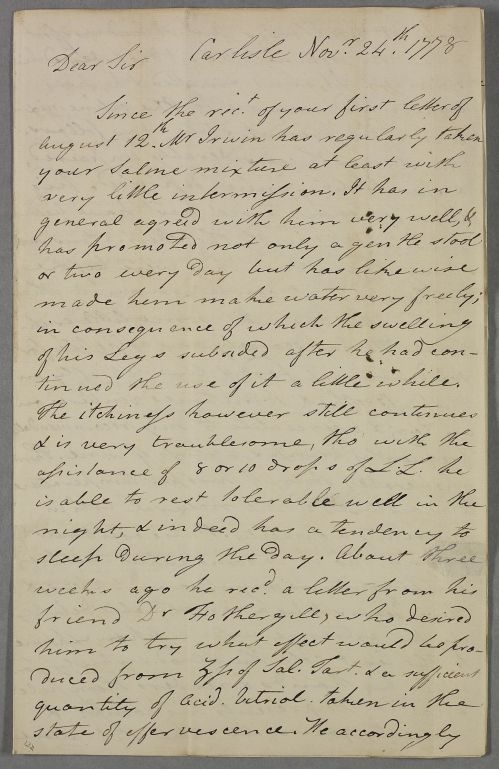 Carlisle Novr. 24th. 1778
Dear Sir
Since the rect. of your first letter of
August 12th. Mr Irwin has regularly taken
your Saline mixture at least with
very little intermission. It has in
general agreed with him very well, &
has promoted not only a gentle stool
or two every day but has likewise
made him make water very freely;
in consequence of which the swelling
of his Legs subsided after he had con-
tinued the use of it a little while.
The itchiness however still continues
& is very troublesome, tho with the
assistance of 8 or 10 drops of L.L. he
is able to rest tolerable well in the
night, & indeed has a tendency to
sleep during the day. About three
weeks ago he recd. a letter from his
friend Dr Fothergill, who desired
him to try what effect would be pro-
duced from ʒſs of Sal. Tart. & a sufficient
quantity of acid. vitriol. taken in the
state of effervescence. He accordingly